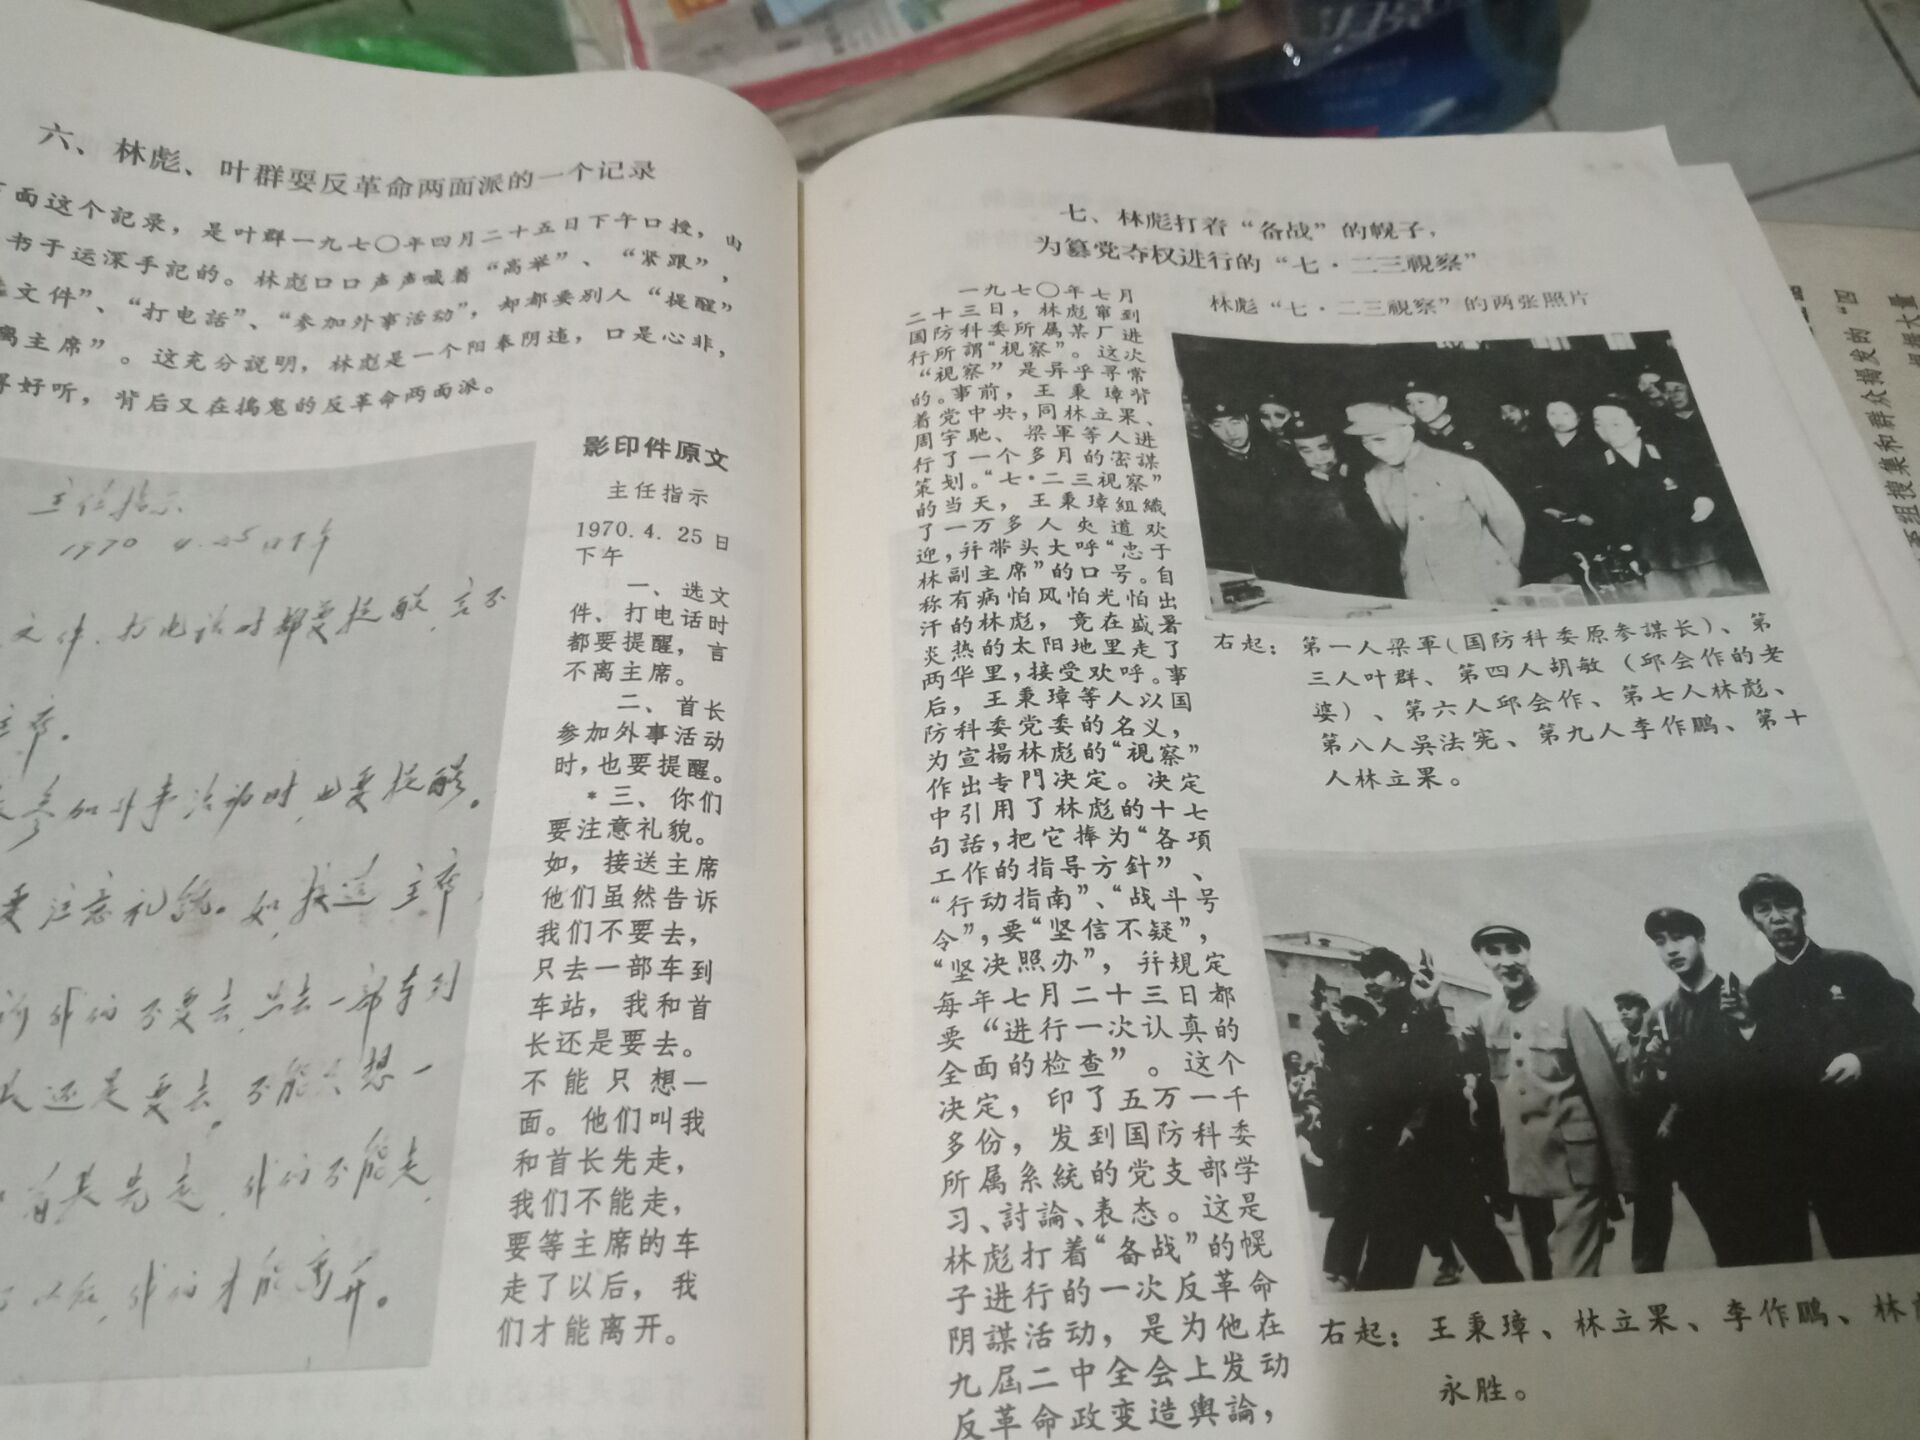 六、林彪、叶群耍反革命两面派的一个记录
面这个記录，是叶群一九七〇年四月二十五日下午口授，由
书于运深手記的。林彪口口声声喊着“高举”、“紧跟”，
文件”、“打电話”、“参加外事活动”，却都要别人“提醒”
离主席”。这充分説明，林彪是一个阳奉阴违，口是心非，
好听，背后又在搗鬼的反革命两面派。
主任指示
1970 4.25日下午
文件、打电话时都要提醒，言不
主席。
参加外事活动时，也要提醒。
要注意礼貌。如，接送主席
我们不要去，只去一部车到
还是要去。不能只想一
首长先走，我们不能走，
以后，我们才能离开。
影印件原文
主任指示
1970．4．25日
下午
一、选文
件、打电话时
都要提醒，言
不离主席。
二、首长
参加外事活动
时，也要提醒。
*三、你们
要注意礼貌。
如，接送主席
他们虽然告诉
我们不要去，
只去一部车到
车站，我和首
长还是要去。
不能只想一
面。他们叫我
和首长先走，
我们不能走，
要等主席的车
走了以后，我
们才能离开。
七、林彪打着“备战”的幌子，
为篡党夺权进行的“七·二三視察”
一九七〇年七月
二十三日，林彪窜到
国防科委所属某厂进
行所謂“視察”。这次
“視察”是异乎寻常
的。事前，王秉璋背
着党中央，同林立果、
周宇驰、梁軍等人进
行了一个多月的密謀
策划。“七·二三視察”
的当天，王秉璋組織
了一万多人夹道欢
迎，并带头大呼“忠于
林副主席”的口号。自
称有病怕风怕光怕出
汗的林彪，竟在盛暑
炎热的太阳地里走了
两华里，接受欢呼。事
后，王秉璋等人以国
防科委党委的名义，
为宣揚林彪的“視察”
作出专門决定。决定
中引用了林彪的十七
句話，把它捧为“各項
工作的指导方針”、
“行动指南”、“战斗号
令”，要“坚信不疑”，
“坚决照办”，并規定
每年七月二十三日都
要“进行一次认真的
全面的检查”。这个
决定，印了五万一千
多份，发到国防科委
所属系統的党支部学
习、討論、表态。这是
林彪打着“备战”的幌
子进行的一次反革命
阴謀活动，是为他在
九届二中全会上发动
反革命政变造輿論，
林彪“七·二三視察”的两张照片
右起：第一人梁軍（国防科委原参謀长）、第
三人叶群、第四人胡敏（邱会作的老
婆）、第六人邱会作、第七人林彪、
第八人吳法宪、第九人李作鵬、第十
人林立果。
右起：王秉璋、林立果、李作鵬、林
永胜。
組搜集和群众揭发的“四
大量